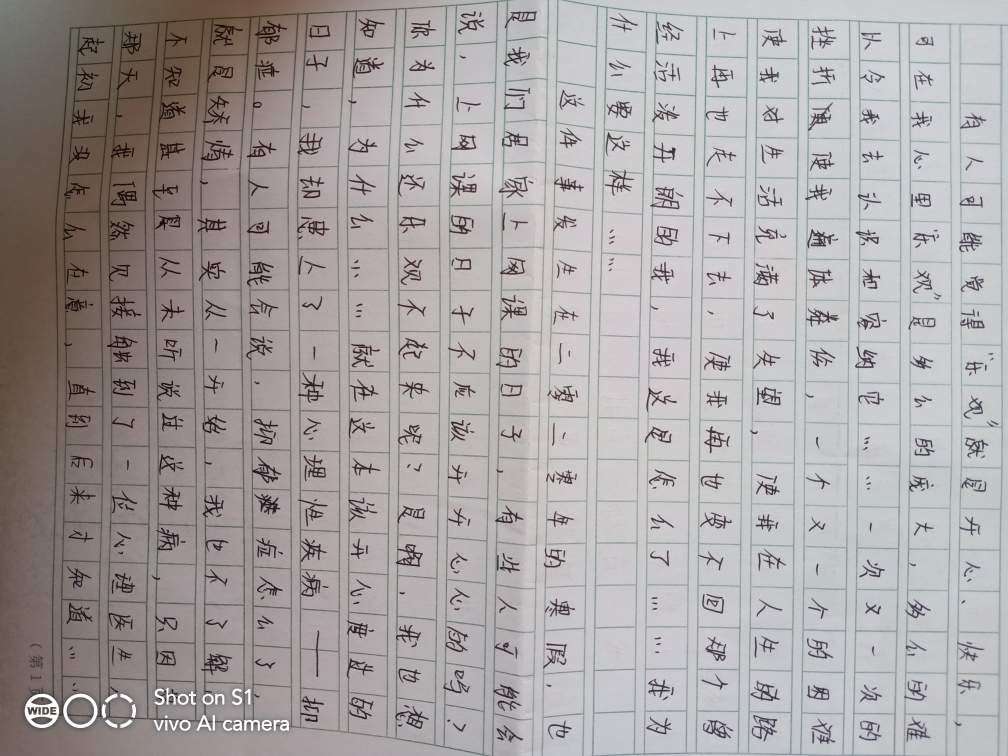 有人可能觉得“乐观”就是开心、快乐,
可在我心里“乐观”是多么的庞大,多么的难
以令我去认识和容纳它……一次又一次的
挫折便使我遍体鳞伤,一个又一个的困难
使我对生活充满了失望,使我在人生的路
上再也走不下去,使我再也变不回那个曾
经活泼开朗的我,我这是怎么了……我为
什么要这样……
这件事发生在二零二零年的寒假,也
是我们居家上网课的日子,有些人可能会
说,上网课的日子不应该开开心心的吗?
你为什么还乐观不起来呢?是啊,我也想
知道,为什么……就在这本该开心度过的
日子,我却患上了一种心理性疾病——抑
郁症。有人可能会说,抑郁症怎么了,
就是矫情,其实从一开始,我也不了解
不知道甚至是从未听说过这种病,只因
那天,我偶然见接触到了一位心理医生
起初我没怎么在意,直到后来才知道…
(第1
WIDE
Shot on S1
vivo AI camera